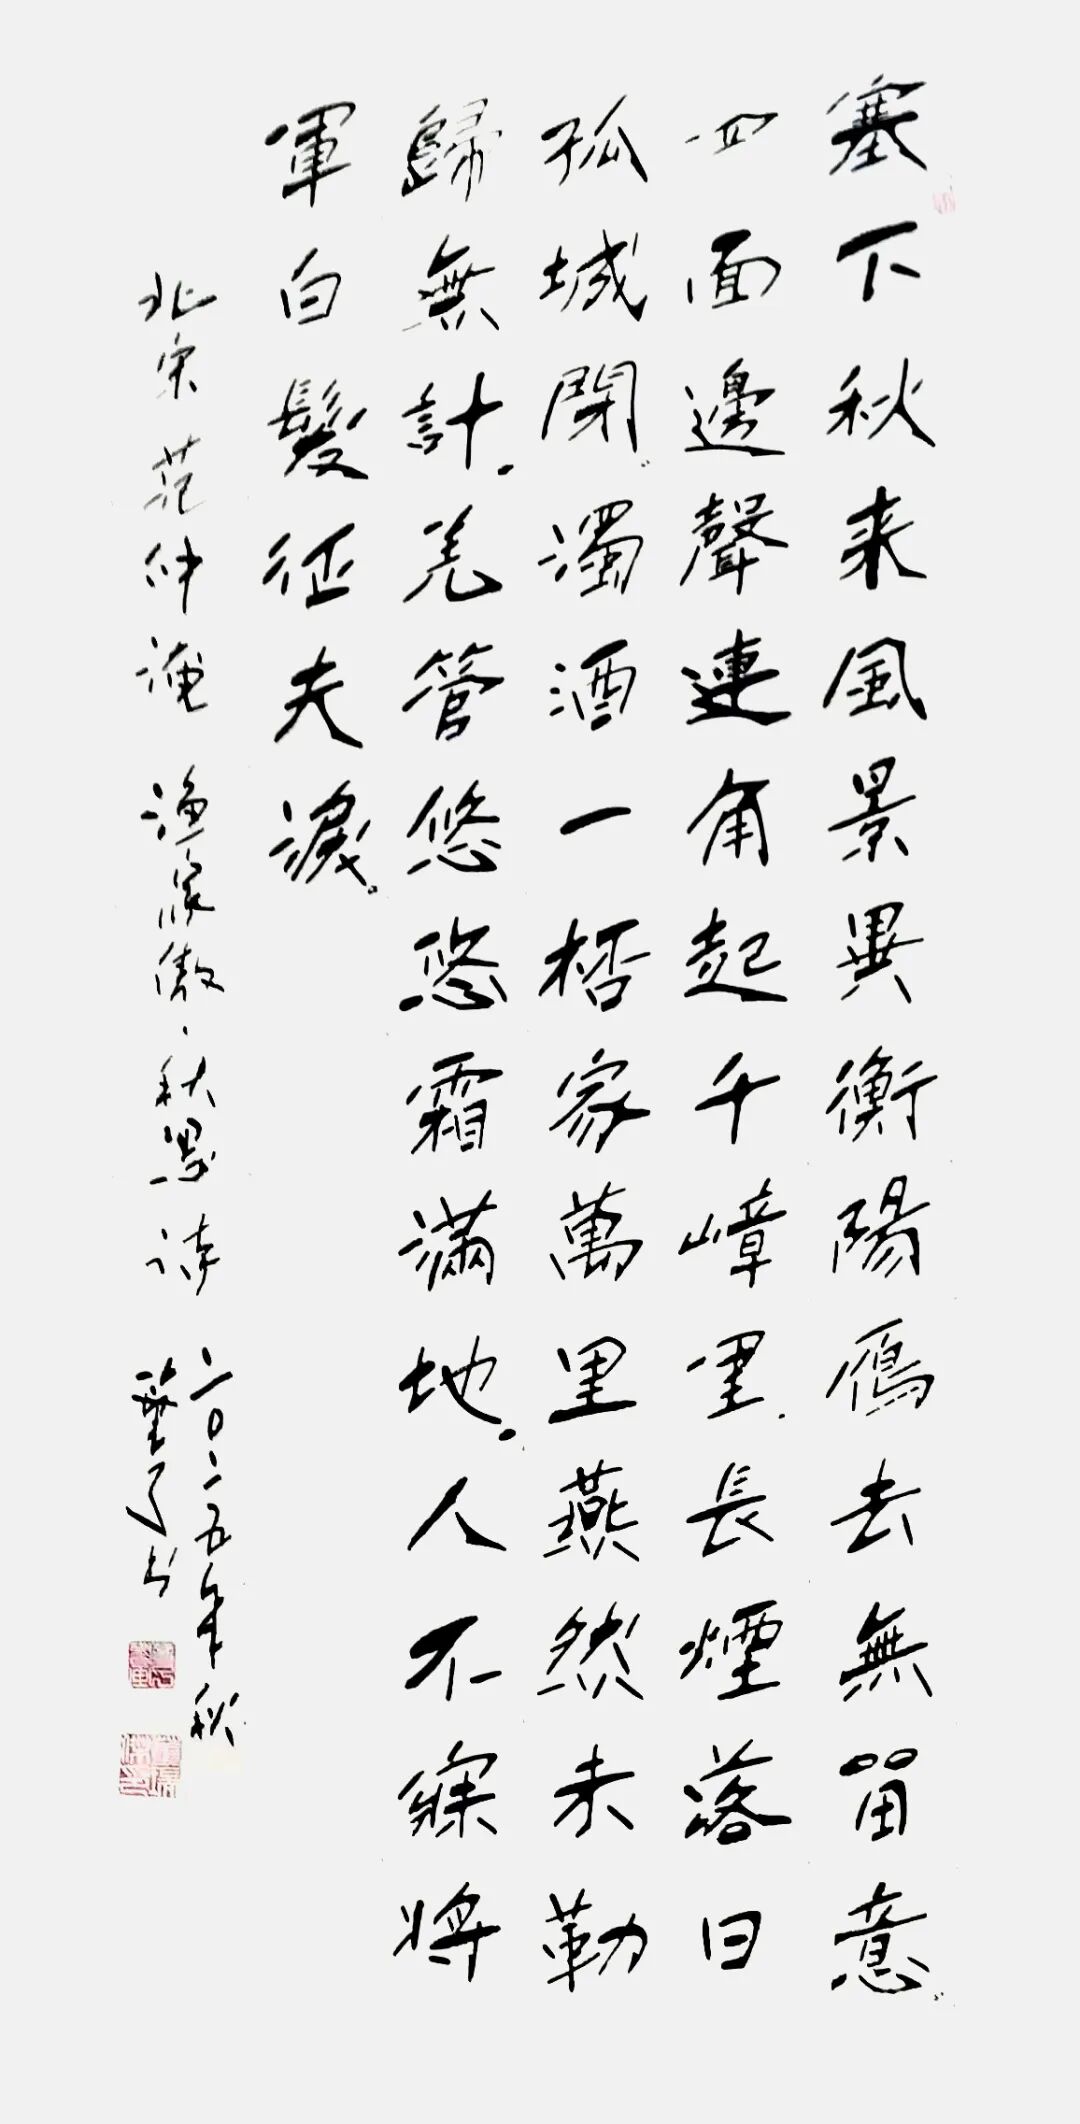 塞下秋来風景異衡陽鴈去無留意。
四面邊聲連角起千嶂里.長煙落日
孤城閉。濁酒一桮家萬里燕然未勒
歸無計.羌管悠悠霜滿地.人不寐將
軍白髮征夫淚。
北宋范仲淹 渔家傲、秋思詩
二〇二五年秋